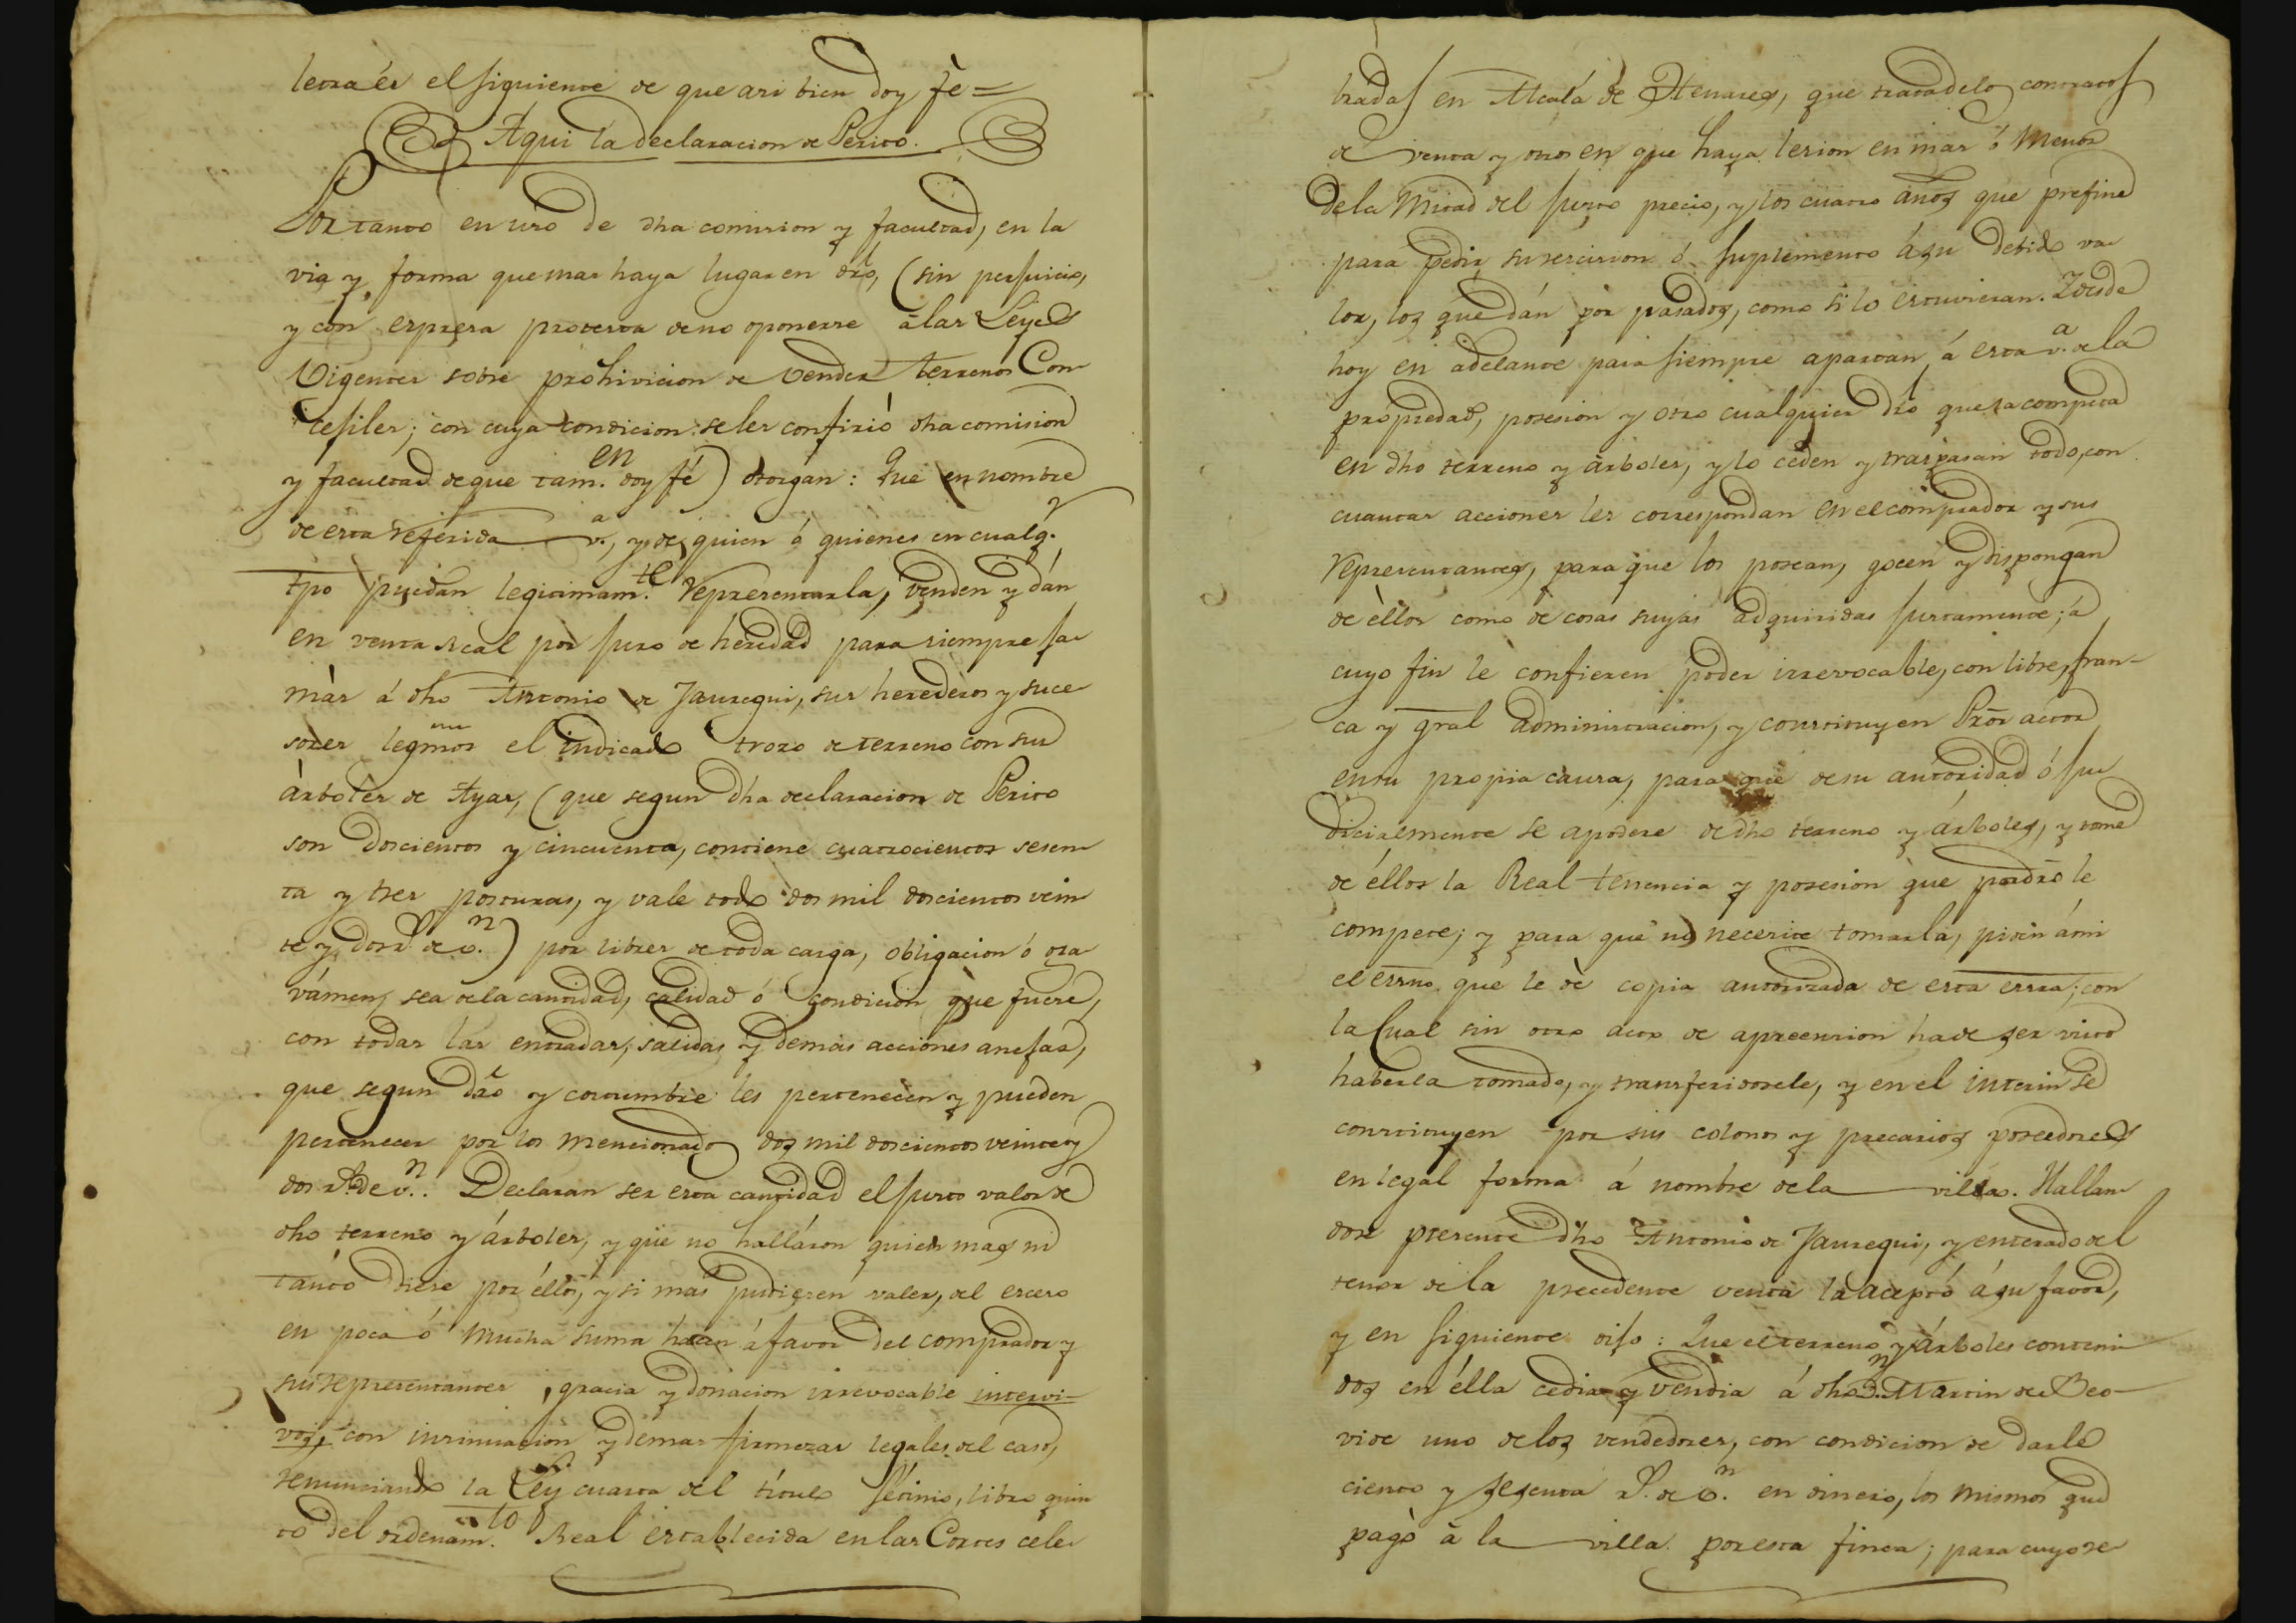 letra és el siguiente de que asi bien doy fè =
Aqui la declaracion de Perito.
Portanto en uso de dha comision y facultad, en la
via y forma que mas haya lugar en dro, (sin perjuicio,
y con expresa protesta de no oponerse à las Leyes
Vigentes sobre prohivicion de Vender terrenos Con
cejiles; con cuya condicion se les confirió dha comision
y facultad de que tam.en doy fé) otorgan: Que en nombre
de esta referida v.a, y de quien ó quienes en cualq.r
tpo puedan legitimam.te representarla, venden y dán
en venta Real por juro de heredad para siempre ja
màs á dho Antonio de Jauregui, sus herederos y suce
sores legmos el indicado trozo de terreno con sus
àrboles de Ayas, (que segun dha declaracion de Perito
son doscientos y cincuenta, contiene cuatrocientos sesen
ta y tres posturas, y vale todo dos mil doscientos vein
te y dos r.s de v.n) por libres de toda carga, obligacion ó gra
vámen, sea de la cantidad, calidad ó condicion que fuere,
con todas las entradas, salidas y demás acciones anejas,
que segun dro y costumbre les pertenecen y pueden
pertenecer por los mencionados dos mil doscientos veinte y
dos r.s de v.n. Declaran ser esta cantidad el justo valor de
dho terreno y árboles, y que no halláron quien mas ni
tanto diese por éllos, y si más pudiesen valer, del exceso
en poca ó mucha suma hacen á favor del comprador y
sus representantes, gracia y donacion irrevocable intervi-
vos, con insinuacion y demas firmezas legales del caso,
renunciando la Ley cuarta del título sétimo, libro quin
to del ordenam.to Real establecida en las Cortes cele
bradas en Alcalá de Henares, que trata de los contratos
de venta y otros en que haya lesion en mas ó menos
de la mitad del justo precio, y los cuatro años que prefine
para pedir su rescision ó suplemento á su debido va
lor, los que dán por pasados, como si lo estuvieran. Y desde
hoy en adelante para siempre apartan á esta v.a de la
propiedad, posesion y otro cualquier dro que la competa
en dho terreno y àrboles, y lo ceden y traspasan todo, con
cuantas acciones les correspondan en el comprador y sus
representantes, para que los posean, gocen y dispongan
de èllos como de cosas suyas adquiridas justamente; á
cuyo fin le confieren poder irrevocable, con libre, fran-
ca y gral administracion, y constituyen Pror actor
en su propia causa, para que de su autoridad ó ju
dicialmente se apodere de dho terreno y árboles, y tome
de éllos la Real tenencia y posesion que por dro le
compete; y para que no necesite tomarla, piden á mi
el esrno. que le dè copia autorizada de esta essra; con
la Cual sin otro acto de apreension ha de ser visto
haberla tomado, y transferidosele, y en el interin se
constituyen por sus colonos y precarios poseedores
en legal forma á nombre de la villa. Hallan
dose presente dho Antonio de Jauregui, y enterado del
tenor de la precedente venta la aceptó á su favor,
y en siguiente dijo: Que el terreno y árboles conteni
dos en élla cedia y vendia á dho D.n Martin de Beo-
vide uno de los vendedores, con condicion de darle
ciento y sesenta r.s de v.n en dinero, los mismos que
pagò à la villa por esta finca; para cuyo re